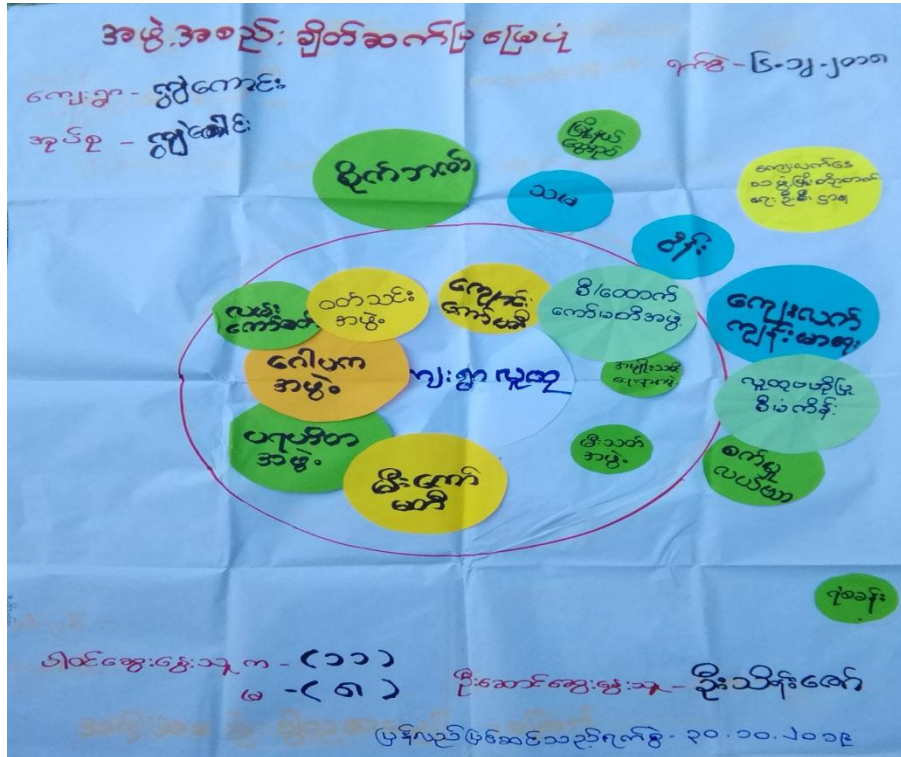 အဖွဲ့အစည်း ချိတ်ဆက်ပြ မြေပုံ
ရက်စွဲ -
ကျေးရွာ - ကျွဲကောင်း
အုပ်စု -
စိုက်ဘဏ်
သမ
ဇိန်း
ကျေးလက်ဒေ
သ ဖွံ့ဖြိုးတိုးတက်
ရေး ဦးစီး ဌာန
လမ်း
ကော်မတီ
ဝတ်သင်း
အဖွဲ့
ကျောင်း
ကော်မတီ
စီ/ထောက်
ကော်မတီအဖွဲ့
ကျေးလက်
ကျန်းမာရေး
ဂေါပက
အဖွဲ့
ကျးရွာ လူထု
လူထုဗဟိုပြု
စီမံကိန်း
ပရဟိတ
အဖွဲ့
မီးသတ်
အဖွဲ့
စက်မှု
လယ်ယာ
မီးကော်
မတီ
ရဲစခန်း
ပါဝင်ဆွေးနွေးသူ ကျ - (၁၁)
မ - (၈)
ဦးဆောင်ဆွေးနွေးသူ - ဦးသိန်းဇော်
ပြန်လည်ပြင်ဆင်သည့်ရက်စွဲ - ၃၀.၁၀.၂၀၁၉